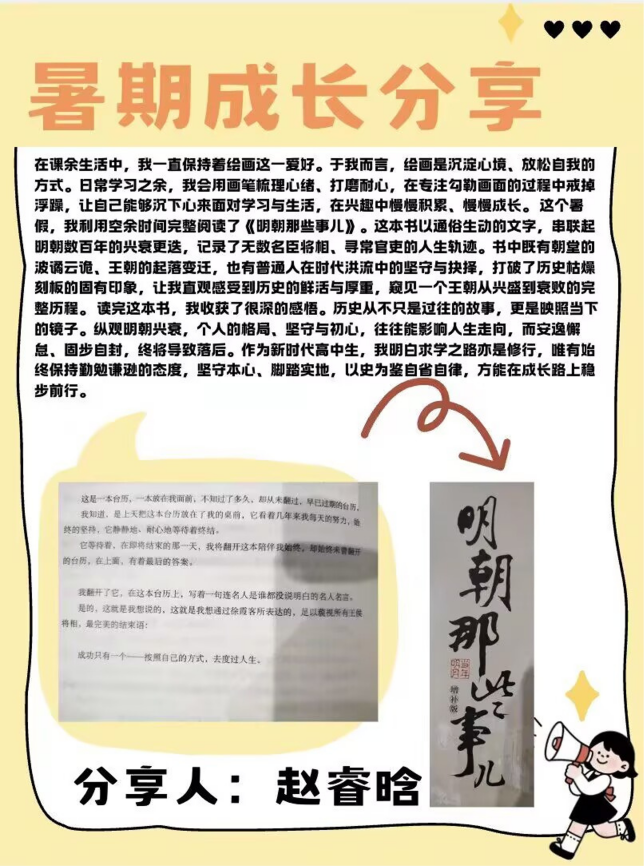 暑期成长分享
在课余生活中，我一直保持着绘画这一爱好。于我而言，绘画是沉淀心境、放松自我的
方式。日常学习之余，我会用画笔梳理心绪、打磨耐心，在专注勾勒画面的过程中戒掉
浮躁，让自己能够沉下心来面对学习与生活，在兴趣中慢慢积累、慢慢成长。 这个暑
假，我利用空余时间完整阅读了《明朝那些事儿》。这本书以通俗生动的文字，串联起
明朝数百年的兴衰更迭，记录了无数名臣将相、寻常官吏的人生轨迹。书中既有朝堂的
波谲云诡、王朝的起落变迁，也有普通人在时代洪流中的坚守与抉择，打破了历史枯燥
刻板的固有印象，让我直观感受到历史的鲜活与厚重，窥见一个王朝从兴盛到衰败的完
整历程。 读完这本书，我收获了很深的感悟。历史从不只是过往的故事，更是映照当下
的镜子。纵观明朝兴衰，个人的格局、坚守与初心，往往能影响人生走向，而安逸懈
怠、固步自封，终将导致落后。作为新时代高中生，我明白求学之路亦是修行，唯有始
终保持勤勉谦逊的态度，坚守本心、脚踏实地，以史为鉴自省自律，方能在成长路上稳
步前行。
这是一本台历，一本放在我面前，不知过了多久，却从来翻过，早已过期的台历。
我知道，是上天把这本台历放在了我的桌前，它看着几年来我每天的努力，始
终的坚持，它静静地、耐心地等待着终结。
它等待着，在即将结束的那一天，我将翻开这本陪伴我始终，却始终未曾翻开
的台历，在上面，有着最后的答案。
我翻开了它，在这本台历上，写着一句连名人是谁都没说明白的名人名言。
是的，这就是我想说的，这就是我想通过徐霞客所表达的，足以藐视所有王侯
将相，最完美的结束语：
成功只有一个——按照自己的方式，去度过人生。
明朝那些事儿
增补版
分享人：赵睿晗